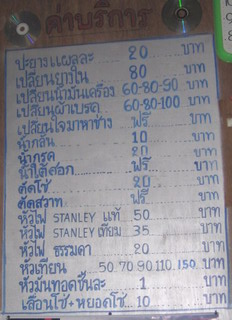 ค่าบริการ
ปะยางแผลละ 20 บาท
เปลี่ยนยางใน 80 บาท
เปลี่ยนน้ำมันเครื่อง 60-80-90 บาท
เปลี่ยนผ้าเบรค 60-80-100 บาท
เปลี่ยนใจมาหาช่าง ฟรี บาท
น้ำกลั่น 10 บาท
น้ำกรด 20 บาท
ฟรี บาท
ตัดโซ่ 20 บาท
ตัดสวาท ฟรี บาท
หัวไฟ STANLEY แท้ 50 บาท
หัวไฟ STANLEY เทียม 35 บาท
หัวไฟ ธรรมดา 20 บาท
หัวเทียน 50 70 90 110 150 บาท
หัวมันทอดชิ้นละ 1 บาท
เลื่อนโซ่+หยอดโซ่ 10 บาท